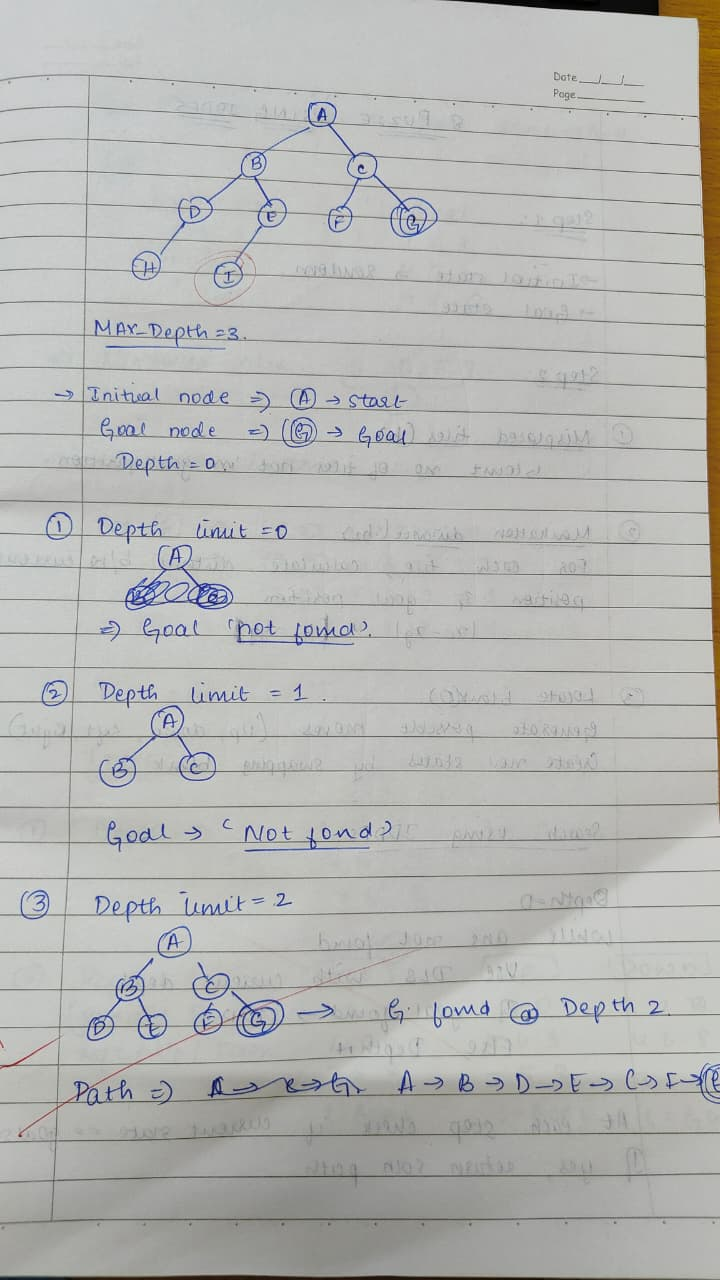 Date __/__/__
Page
A
B C
D E F G
H I
MAX-Depth = 3.
→ Initial node ⇒ (A) → start
Goal node ⇒ (G) → Goal
Depth = 0.
① Depth limit = 0
A
⇒ Goal 'not fomd'.
② Depth limit = 1.
A
B C
Goal → 'Not fond'
③ Depth limit = 2
A
B C
D E F G → G fomd @ Depth 2.
Path ⇒ A → B → D → E → C → F →